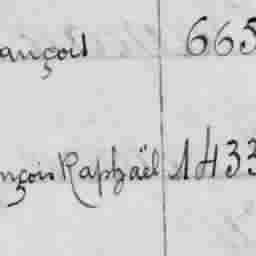 ançois 665
nçois Raphaël 1433